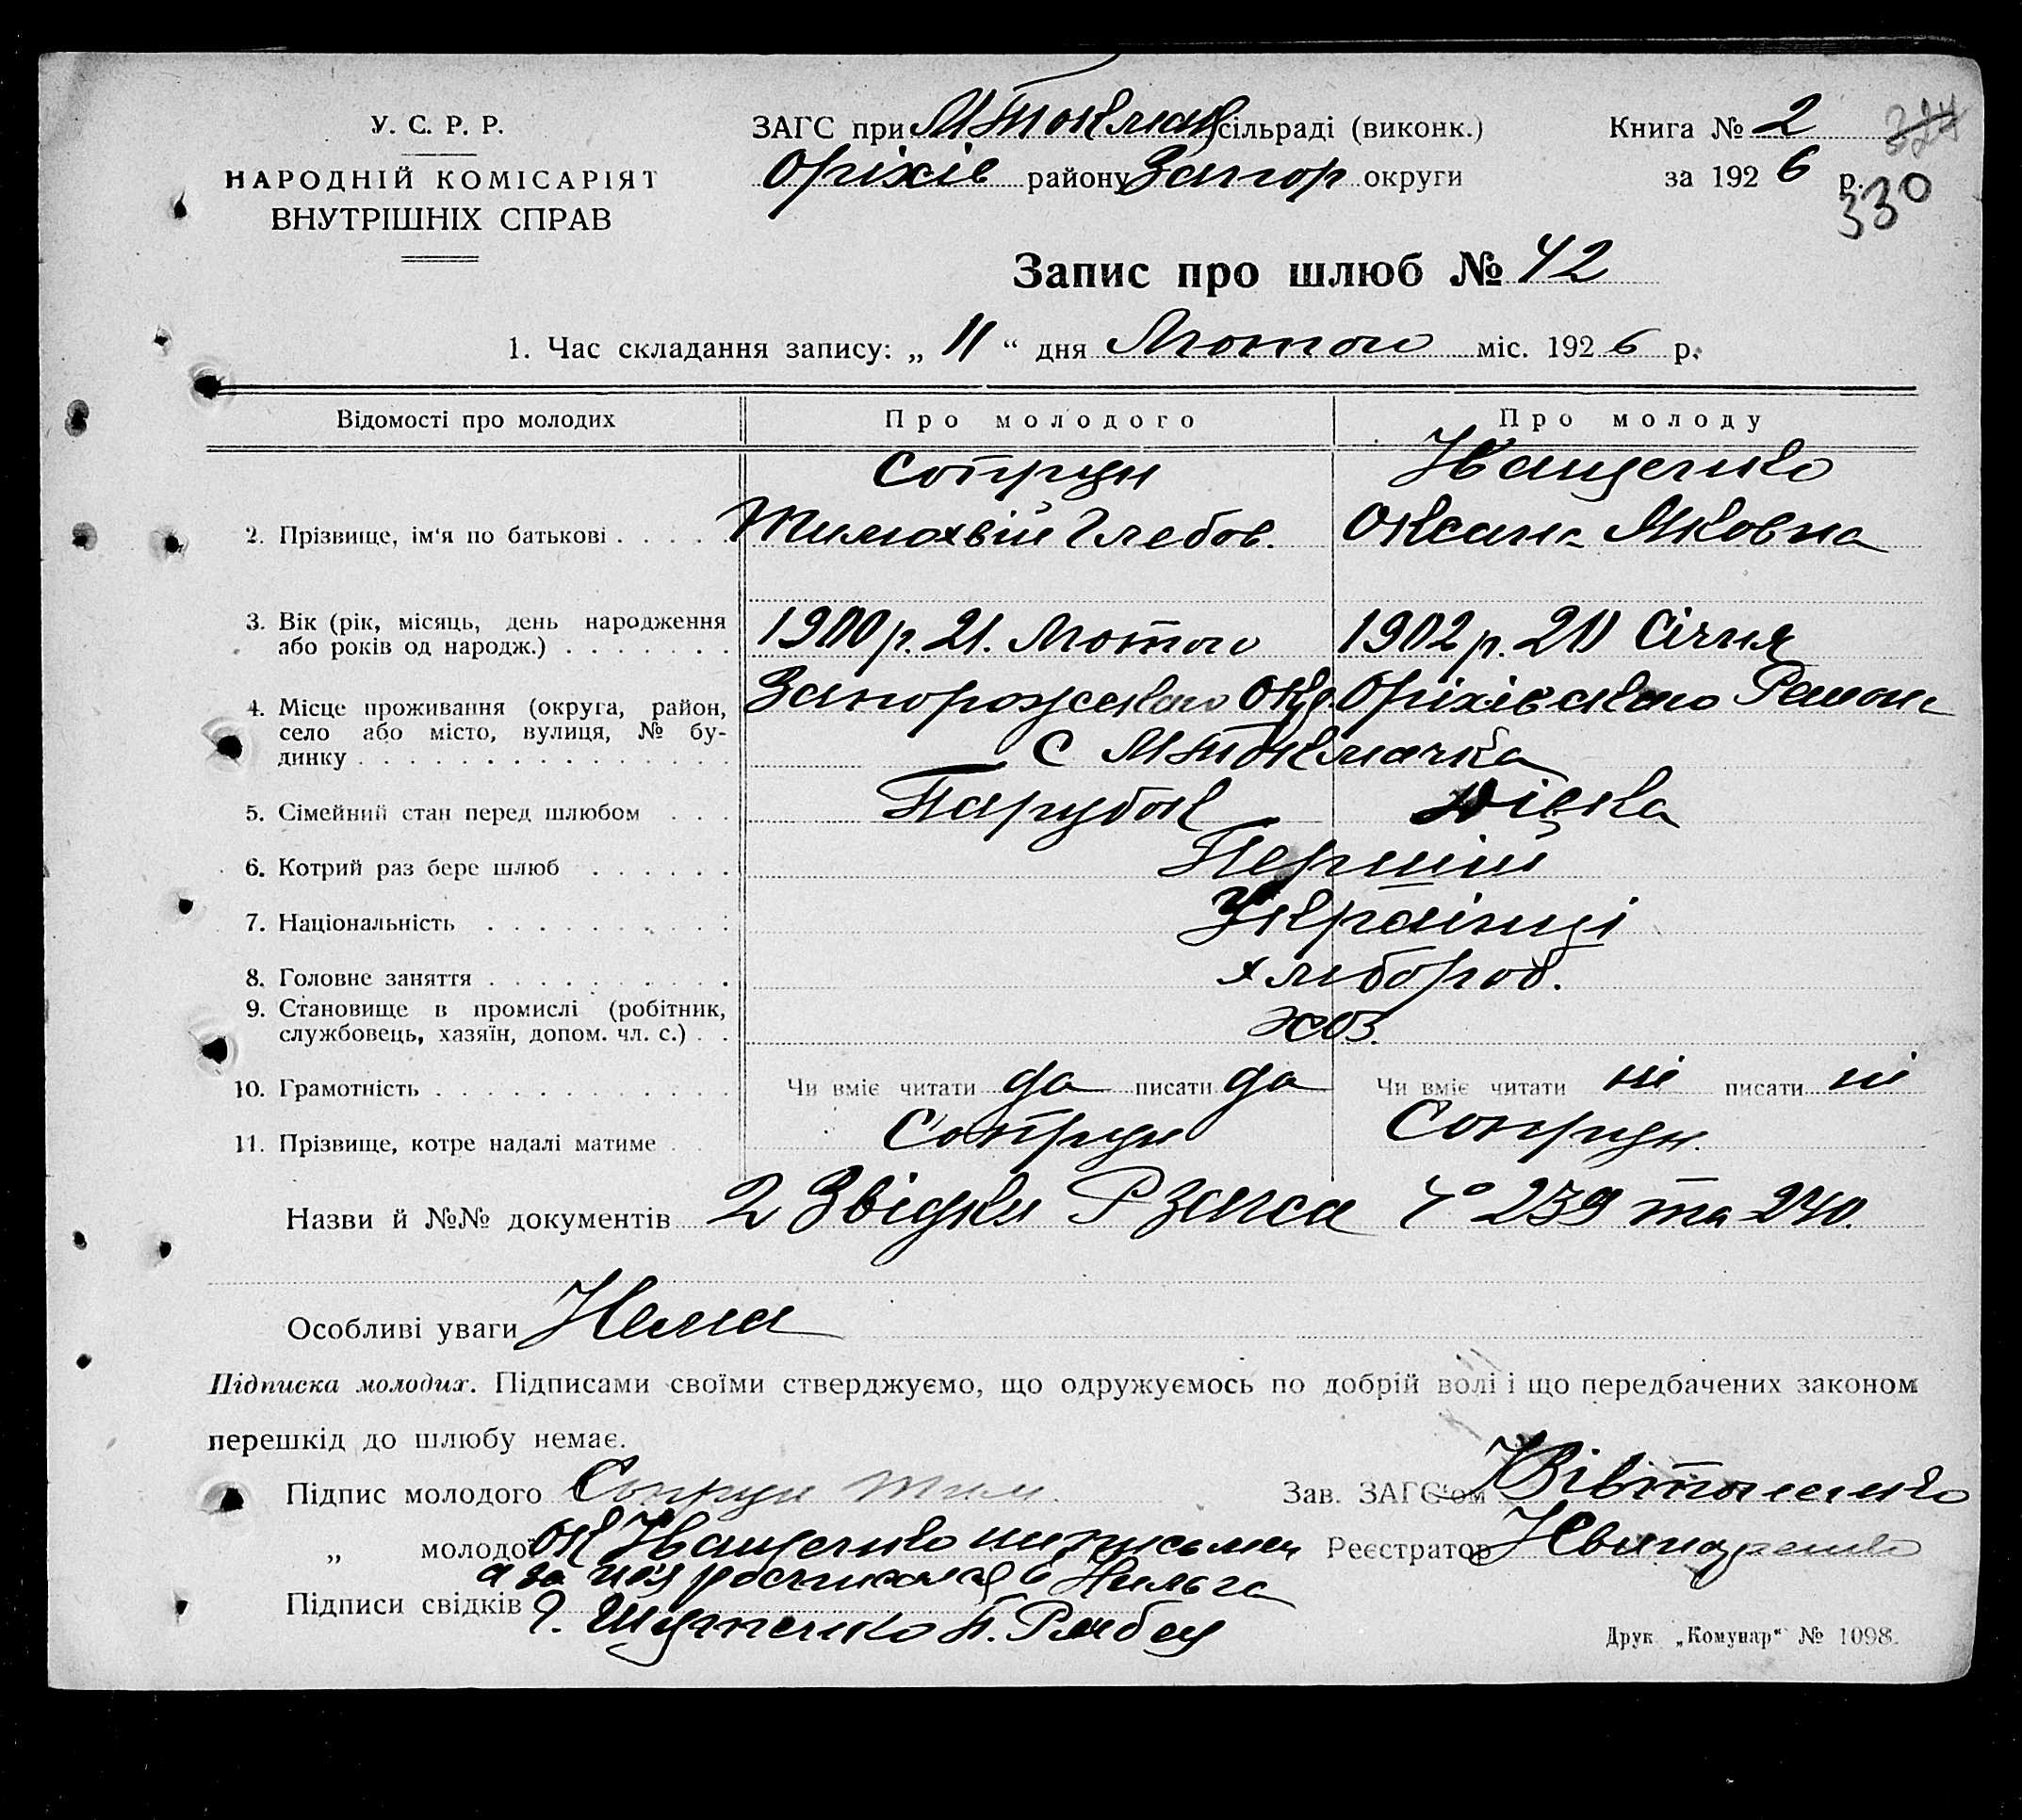 У. С. Р. Р.
НАРОДНІЙ КОМІСАРІЯТ
ВНУТРІШНІХ СПРАВ
ЗАГС при М Токмац сільраді (виконк.)
Оріхів району Запор округи
Книга № 2
324
за 1926 р.
330
Запис про шлюб № 42
1. Час складання запису: „ 11 “ дня Лютого міс. 1926 р.
Відомості про молодих Про молодого Про молоду
Сопрун Іващенко
2. Прізвище, ім'я по батькові Тимохвій Глебов. Оксана Яковна
3. Вік (рік, місяць, день народження
або років од народж.) 1900 р. 21. Лютого 1902 р. 20 Січня
4. Місце проживання (округа, район,
село або місто, вулиця, № бу-
динку
Запорожського Окр. Оріхівského Район
с МТокмачка
5. Сімейний стан перед шлюбом Парубок Дівка
6. Котрий раз бере шлюб Перший
7. Національність Українці
8. Головне заняття хлібороб.
9. Становище в промислі (робітник,
службовець, хазяїн, допом. чл. с.) хоз.
10. Грамотність Чи вміє читати да писати да Чи вміє читати ні писати ні
11. Прізвище, котре надалі матиме Сопрун Сопрун.
Назви й №№ документів 2 Звідки Рзагса № 239 та 240.
Особливі уваги Нема
Підписка молодих. Підписами своїми стверджуємо, що одружуємось по добрій волі і що передбачених законом
перешкід до шлюбу немає.
Підпис молодого Сопрун Тим.
Зав. ЗАГС'ом
„ молодої Ок Іващенко неписьмен
а за неї росписался
Реєстратор
Підписи свідків
П. Рябец
Друк „Комунар“ № 1098.